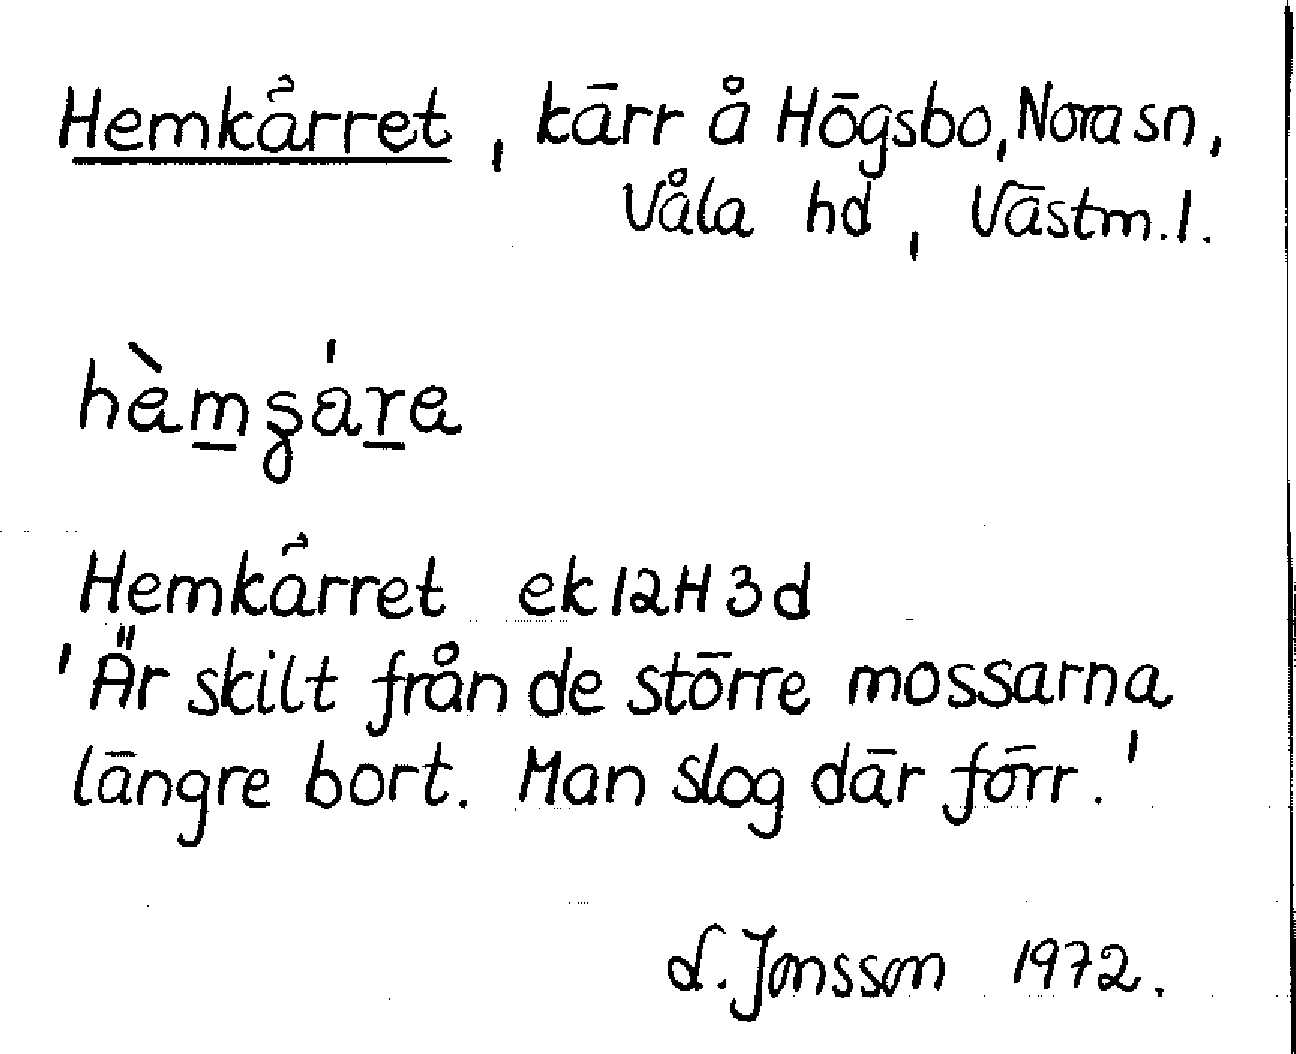 Hemkärret, kärr å Högsbo, Nora sn,
Våla hd, Västm. l.
Hemkärret ek 12H 3d
'Är skilt från de större mossarna
längre bort. Man slog där förr.'
Jonsson 1972.